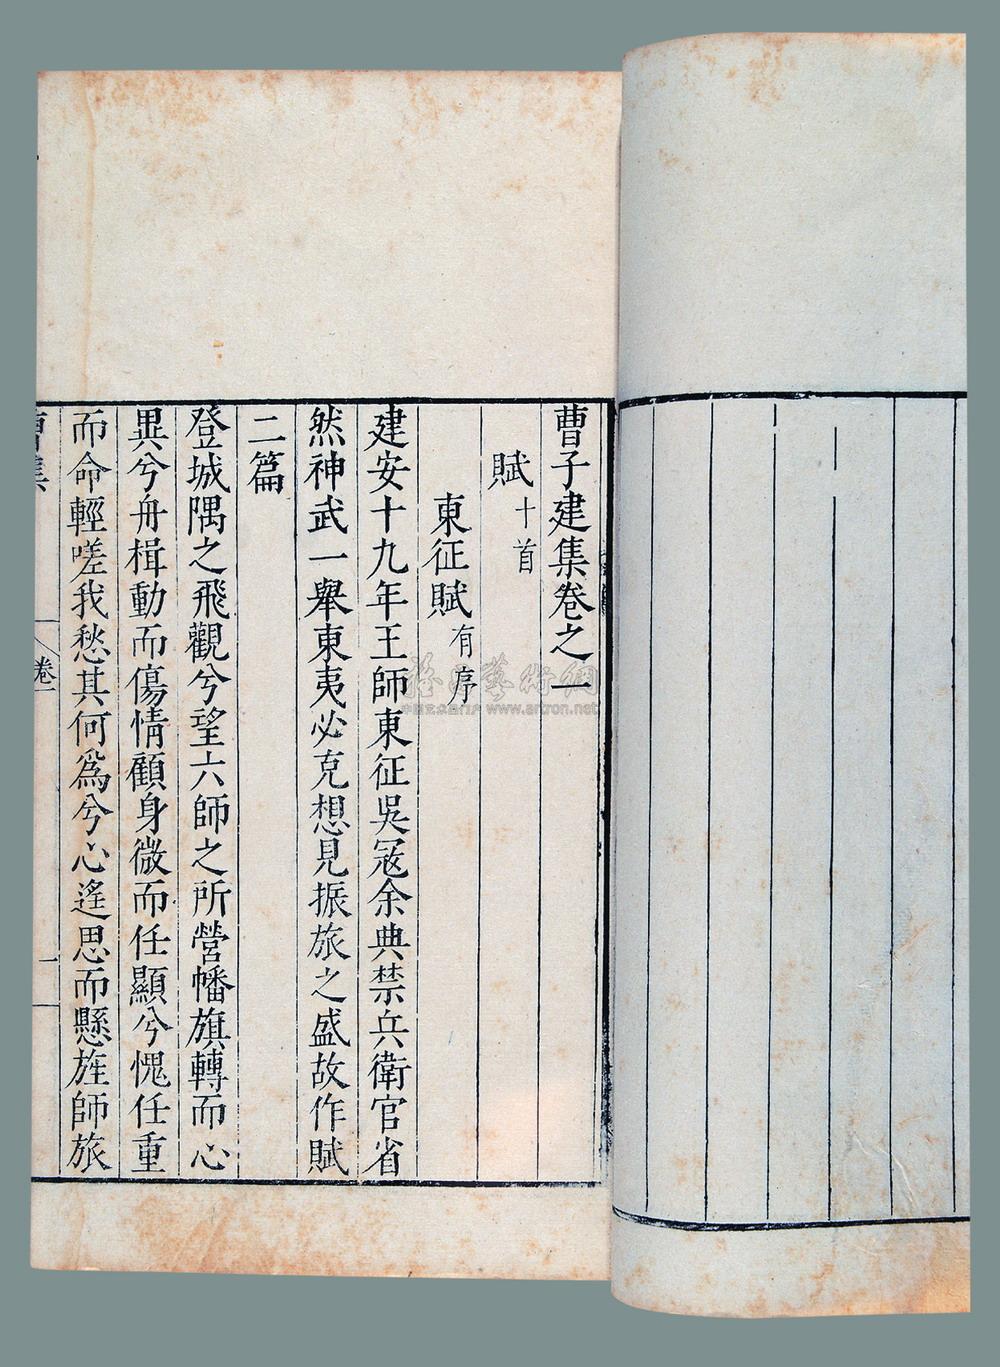 曹子建集卷之一
賦十首
東征賦有序
建安十九年王師東征吳冦余典禁兵衛官省
然神武一舉東夷必克想見振旅之盛故作賦
二篇
登城隅之飛觀兮望六師之所營幡旗轉而心
異兮舟楫動而傷情顧身微而任顯兮愧任重
而命輕嗟我愁其何爲兮心遙思而懸旌師旅
卷一
一
www.artron.net